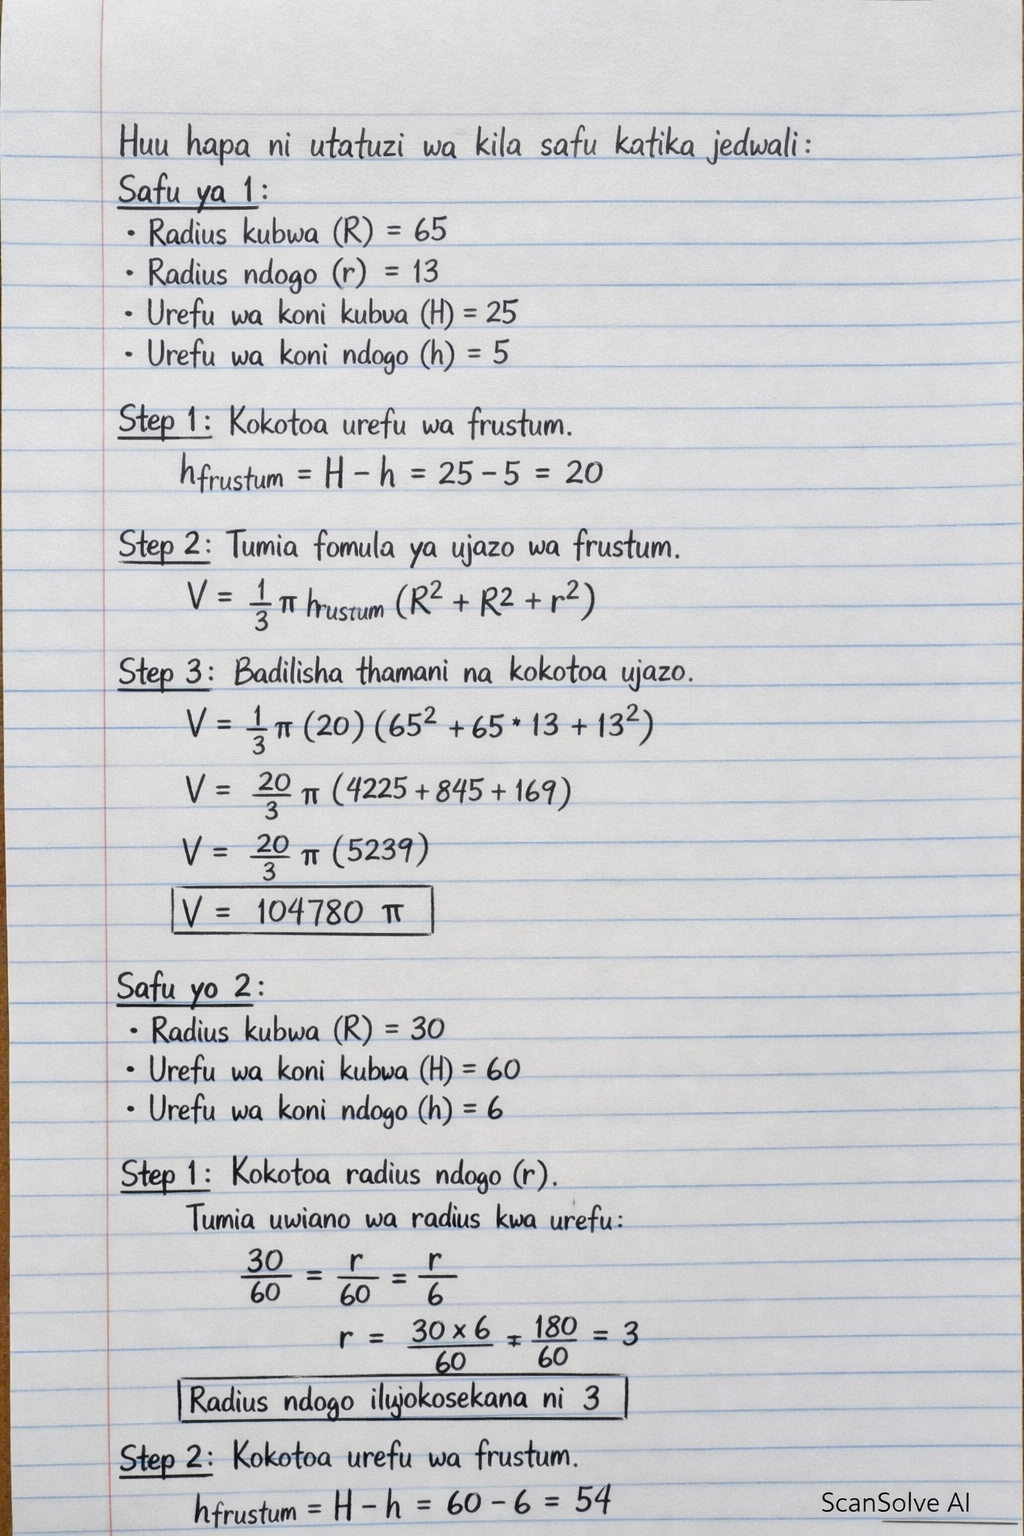 Huu hapa ni utatuzi wa kila safu katika jedwali:
Safu ya 1:
• Radius kubwa (R) = 65
• Radius ndogo (r) = 13
• Urefu wa koni kubua (H) = 25
• Urefu wa koni ndogo (h) = 5
Step 1: Kokotoa urefu wa frustum.
hfrustum = H - h = 25 - 5 = 20
Step 2: Tumia fomula ya ujazo wa frustum.
V = 1/3 π hrustum (R² + R2 + r²)
Step 3: Badilisha thamani na kokotoa ujazo.
V = 1/3 π (20) (65² + 65 * 13 + 13²)
V = 20/3 π (4225 + 845 + 169)
V = 20/3 π (5239)
V = 104780 π
Safu yo 2:
• Radius kubwa (R) = 30
• Urefu wa koni kubwa (H) = 60
• Urefu wa koni ndogo (h) = 6
Step 1: Kokotoa radius ndogo (r).
Tumia uwiano wa radius kwa urefu:
30/60 = r/60 = r/6
r = 30 x 6/60 = 180/60 = 3
Radius ndogo ilujokosekana ni 3
Step 2: Kokotoa urefu wa frustum.
hfrustum = H - h = 60 - 6 = 54
ScanSolve AI